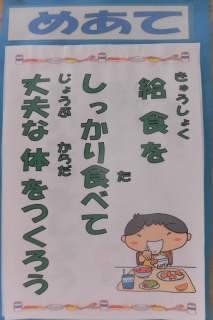 めあて
給食を
きゅうしょく
しっかり食べて
た
丈夫な体をつくろう
じょうぶ からだ